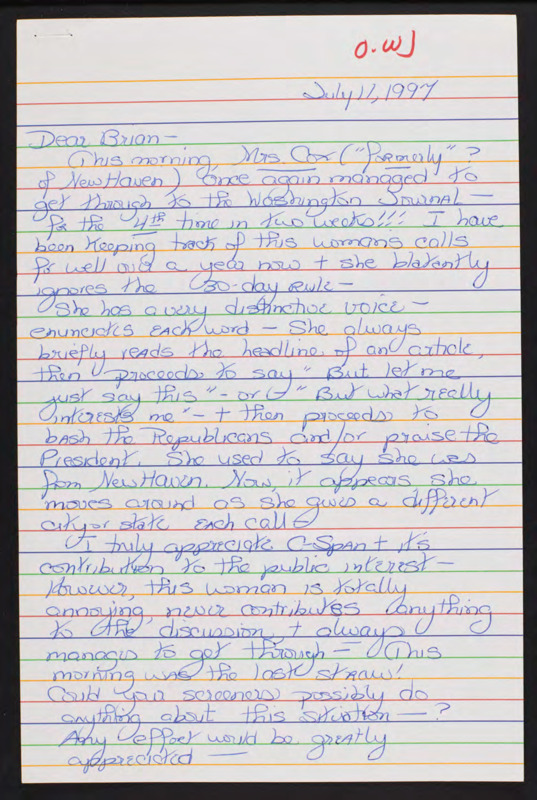 O.WJ
July 11, 1997
Dear Brian -
This morning, Mrs. Cox ("formerly"?
of New Haven) once again managed to
get through to the Washington Journal -
for the 4th time in two weeks!!! I have
been keeping track of this womans calls
for well over a year now + she blatantly
ignores the 30-day rule -
She has a very distinctive voice -
enunciates each word - She always
briefly reads the headline of an article,
then proceeds to say "But let me
just say this" - or "But what really
interests me" - + then proceeds to
bash the Republicans and/or praise the
President. She used to say she was
from New Haven. Now, it appears she
moves around as she gives a different
city or state each call
I truly appreciate C-Span + it's
contribution to the public interest -
However, this woman is totally
annoying, never contributes anything
to the discussion, + always
manages to get through - This
morning was the last straw!
Could your screeners possibly do
anything about this situation - ?
Any effort would be greatly
appreciated -